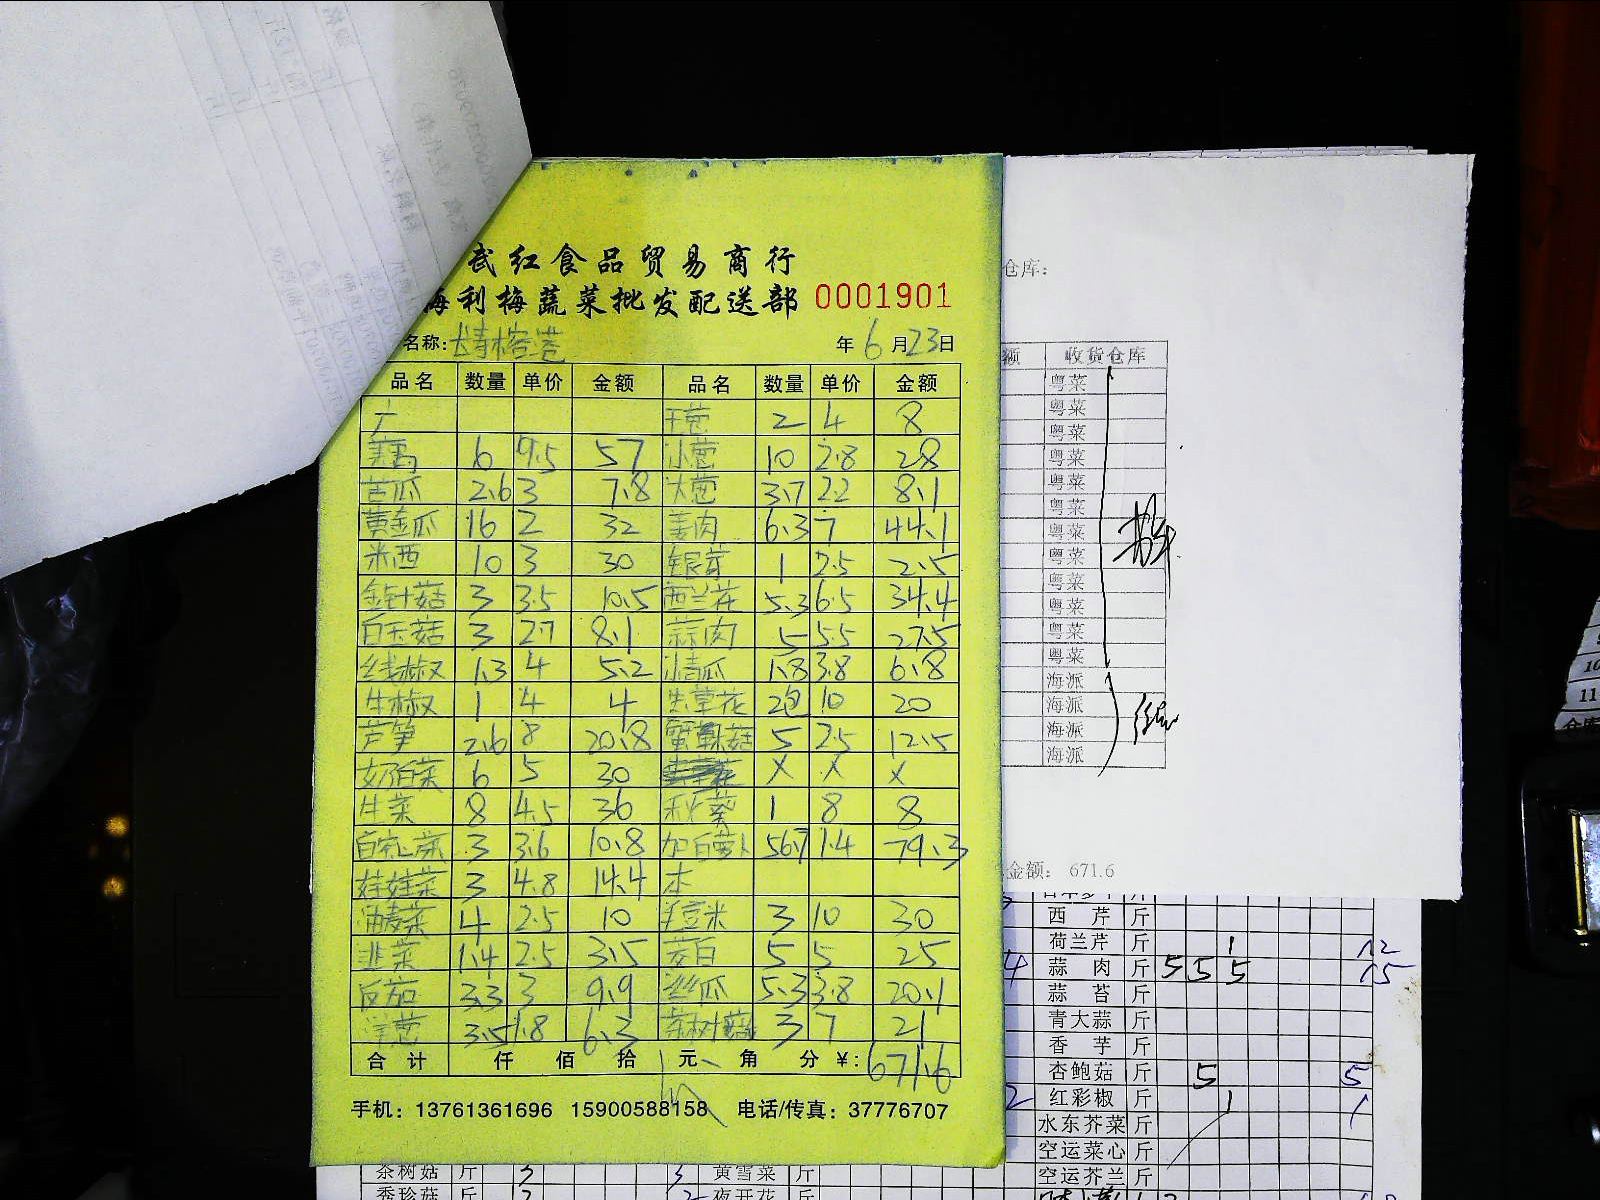 武红食品贸易商行
海利梅蔬菜批发配送部 0001901
名称: 年6月23日
品名 数量 单价 金额 品名 数量 单价 金额
干葱 2 4 8
6 9.5 57 小葱 10 2.8 28
苦瓜 2.6 3 7.8 大葱 3.7 2.2 8.1
黄金瓜 16 2 32 姜肉 6.3 7 44.1
米西 10 3 30 银芽 1 2.5 2.5
金针菇 3 3.5 10.5 西兰花 5.3 6.5 34.4
白玉菇 3 2.7 8.1 蒜肉 5 5.5 27.5
线椒 1.3 4 5.2 小青瓜 1.8 3.8 6.8
牛椒 1 4 4 生草花 2包 10 20
芦笋 2.6 8 20.8 蟹味菇 5 2.5 12.5
奶白菜 6 5 30 X X X
生菜 8 4.5 36 秋葵 1 8 8
3 3.6 10.8 加白萝卜 56.7 1.4 79.3
娃娃菜 3 4.8 14.4 本
油麦菜 4 2.5 10 羊豆米 3 10 30
韭菜 1.4 2.5 3.5 茭白 5 5 25
反茄 3.3 3 9.9 丝瓜 5.3 3.8 20.1
洋葱 3.5 1.8 6.3 茶树菇 3 7 21
合计 仟 佰 拾 元 角 分 ¥: 671.6
手机: 13761361696 15900588158 电话/传真: 37776707
仓库:
额 收货仓库
粤菜
粤菜
粤菜
粤菜
粤菜
粤菜
粤菜
粤菜
粤菜
粤菜
粤菜
粤菜
海派
海派
海派
海派
金额: 671.6
西芹 斤
荷兰芹 斤 1 12
4 蒜肉 斤 5 5 5 15
蒜苔 斤
青大蒜 斤
香芋 斤
杏鲍菇 斤 5 5
2 红彩椒 斤 1 1
水东芥菜 斤
空运菜心 斤
空运芥兰 斤
茶树菇 斤 3 3 黄雪菜 斤
秀珍菇 斤 2 2 夜开花 斤
10
11
仓库